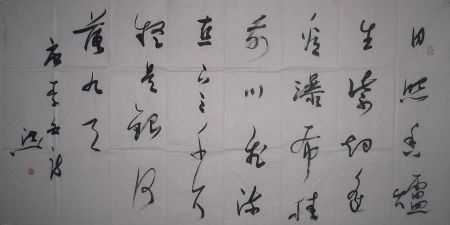 日照香爐
生紫烟遥
看瀑布挂
前川飞流
直下三千尺
疑是银河
落九天
唐李白诗